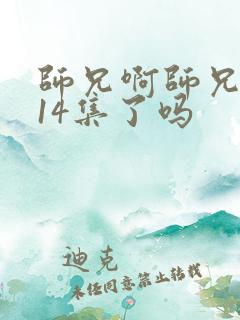 師兄啊師兄
14集了吗
迪克
未经同意禁止转载